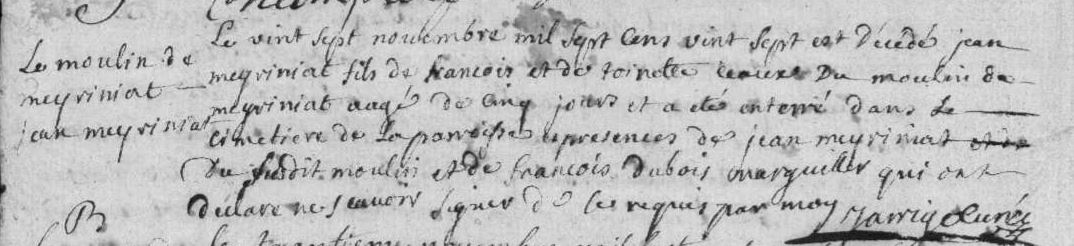 Le moulin de
meyriniat
jean meyriniat
Le vint sept novembre mil sept cens vint sept est décédé jean
meyriniat fils de francois et de toinette ceaux du moulin de
meyriniat aagé de cinq jours et a eté enterré dans le
cimetiere de la parroisse presences de jean meyriniat et de
du susdit moulin et de francois dubois marguiller qui ont
declare ne scavoir signer de ce requis par moy